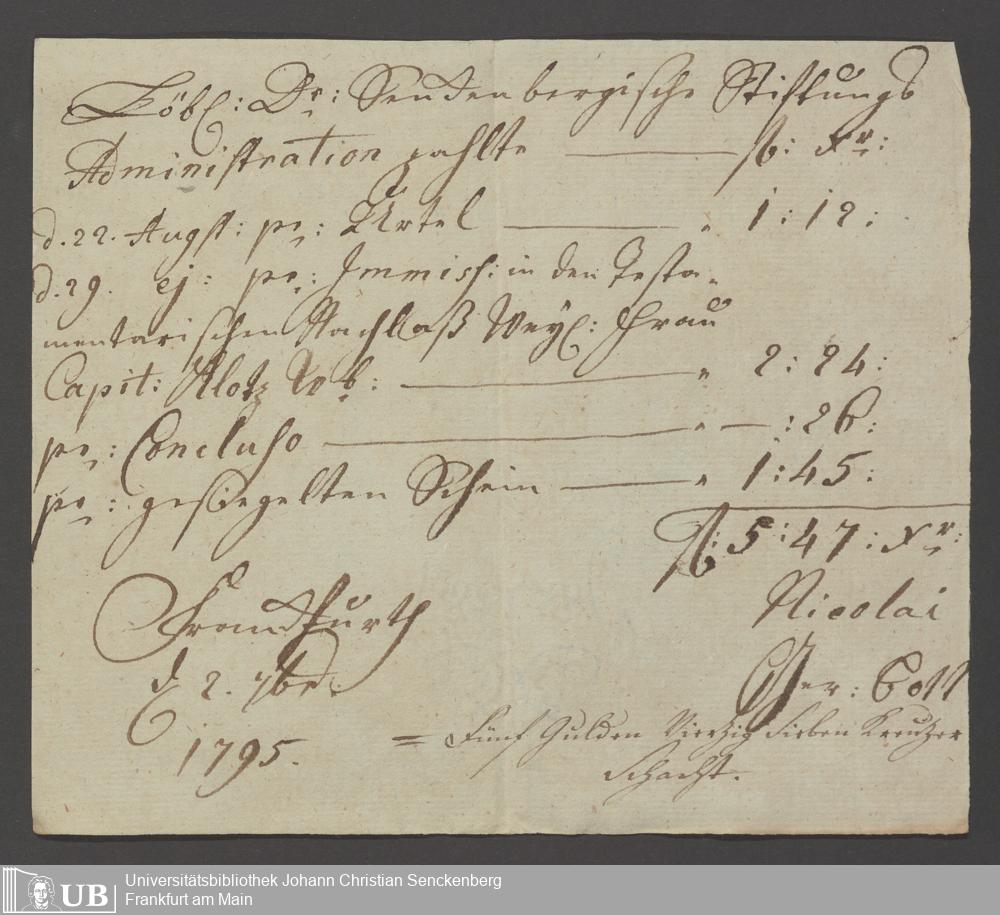 Löbl: Dr: Senckenbergische Stiftungs
Administration zahlte — fl: Xr:
d. 22. Augst: pr: Urtel — „ 1 : 12 :
d. 29. ej: pr: Immiss: in den Testa-
mentarischen Nachlaß Weyl: Frau
Capit: Klotz Wb: — „ 2 : 24 :
pr: Concluso — „ — : 26 :
pr: gesiegelten Schein — „ 1 : 45 :
fl: 5 : 47 : Xr:
Nicolai
Franckfurth
d 2. 7br:
Ger: Bott
1795.
= Fünf Gulden Vierzig Sieben Kreutzer
UB
Universitätsbibliothek Johann Christian Senckenberg
Frankfurt am Main